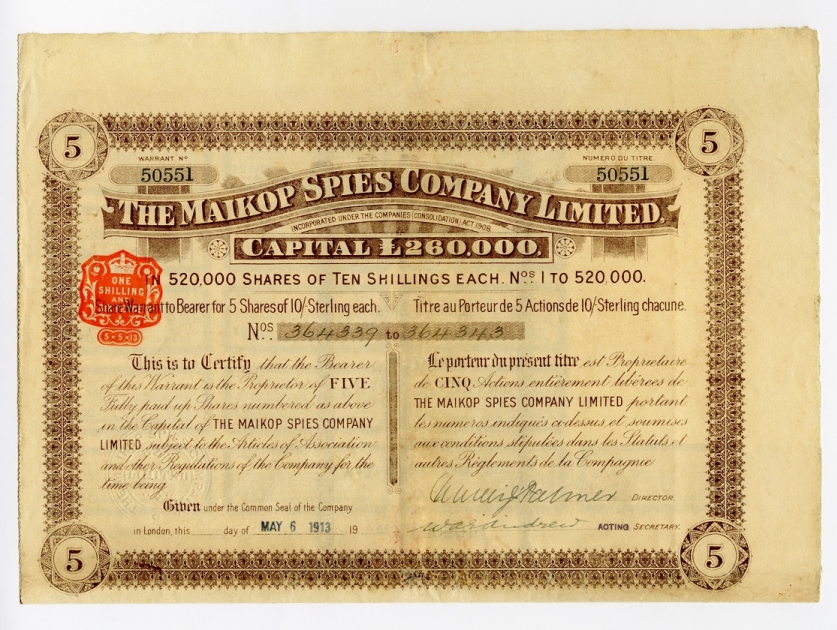 5
5
WARRANT Nº
NUMERO DU TITRE
50551
50551
THE MAIKOP SPIES COMPANY LIMITED.
INCORPORATED UNDER THE COMPANIES (CONSOLIDATION) ACT 1908.
CAPITAL £260,000.
IN 520,000 SHARES OF TEN SHILLINGS EACH. Nºs 1 TO 520,000.
ONE
SHILLING
AND
5·5·13
Share Warrant to Bearer for 5 Shares of 10/ Sterling each.
Titre au Porteur de 5 Actions de 10/ Sterling chacune.
Nos. 364339 to 364343
This is to Certify that the Bearer
of this Warrant is the Proprietor of FIVE
Fully paid up Shares numbered as above
in the Capital of THE MAIKOP SPIES COMPANY
LIMITED subject to the Articles of Association
and other Regulations of the Company for the
time being
Le porteur du présent titre est Propriétaire
de CINQ Actions entièrement libérées de
THE MAIKOP SPIES COMPANY LIMITED portant
les numéros indiqués ci-dessus et soumises
aux conditions stipulées dans les Statuts et
autres Règlements de la Compagnie
Given under the Common Seal of the Company
in London, this day of MAY 6 1913 19
Palmer DIRECTOR.
ACTING SECRETARY.
5
5